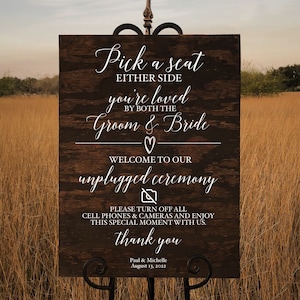 Pick a seat
EITHER SIDE
you're loved
BY BOTH THE
Groom & Bride
WELCOME TO OUR
unplugged ceremony
PLEASE TURN OFF ALL
CELL PHONES & CAMERAS AND ENJOY
THIS SPECIAL MOMENT WITH US.
thank you
Paul & Michelle
August 13, 2022